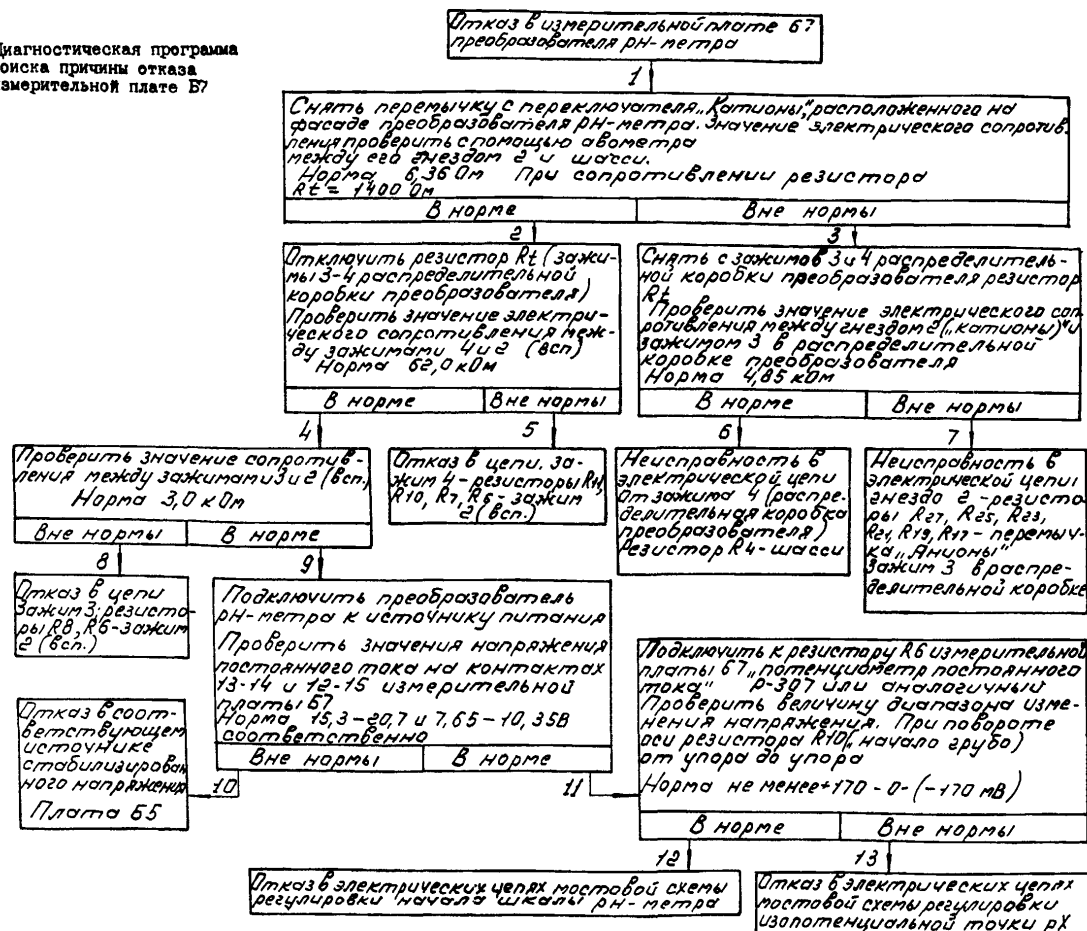 Диагностическая программа
поиска причины отказа
измерительной плате Б7
Отказ в измерительной плате Б7
преобразователя рН-метра
1
Снять перемычку с переключателя „Катионы", расположенного на
фасаде преобразователя рН-метра. Значение электрического сопротив-
ления проверить с помощью авометра
между его гнездом 2 и шасси.
Норма 6,36 Ом При сопротивлении резистора
Rt = 1400 Ом
В норме
Вне нормы
2
3
Отключить резистор Rt (зажи-
мы 3-4 распределительной
коробки преобразователя)
Проверить значение электри-
ческого сопротивления меж-
ду зажимами 4 и 2 (всп)
Норма 62,0 кОм
В норме
Вне нормы
Снять с зажимов 3 и 4 распределитель-
ной коробки преобразователя резистор
Rt
Проверить значение электрического соп-
ротивления между гнездом 2 („катионы)" и
зажимом 3 в распределительной
коробке преобразователя
Норма 4,85 кОм
В норме
Вне нормы
4
5
6
7
Проверить значение сопротив-
ления между зажимами 3 и 2 (всп.)
Норма 3,0 кОм
Вне нормы
В норме
Отказ в цепи. За-
жим 4-резисторы
R10, R7, R6 - зажим
2 (всп.)
Неисправность в
электрической цепи
От зажима 4 (распре-
делительная коробка
преобразователя)
Резистор R4-шасси
Неисправность в
электрической цепи
гнездо 2 - резисто-
ры R27, R25, R23,
R21, R19, R17 - перемыч-
ка „Анионы"
Зажим 3 в распре-
делительной коробке
8
9
Отказ в цепи
Зажим 3; резисто-
ры R8, R6-зажим
2 (всп.)
Подключить преобразователь
рН-метра к источнику питания
Проверить значения напряжения
постоянного тока на контактах
13-14 и 12-15 измерительной
платы Б7
Норма 15,3-20,7 и 7,65-10,35В
соответственно
Вне нормы
В норме
10
11
Отказ в соот-
ветствующем
источнике
стабилизирован
ного напряжения
Плата Б5
Подключить к резистору R6 измерительной
платы Б7 „потенциометр постоянного
тока" Р-307 или аналогичный
Проверить величину диапазона изме-
нения напряжения. При повороте
оси резистора R10 („начало грубо)
от упора до упора
Норма не менее +170 - 0 - (-170 мВ)
В норме
Вне нормы
12
13
Отказ в электрических цепях мостовой схемы
регулировки начала шкалы рН-метра
Отказ в электрических цепях
мостовой схемы регулировки
изопотенциальной точки рХ